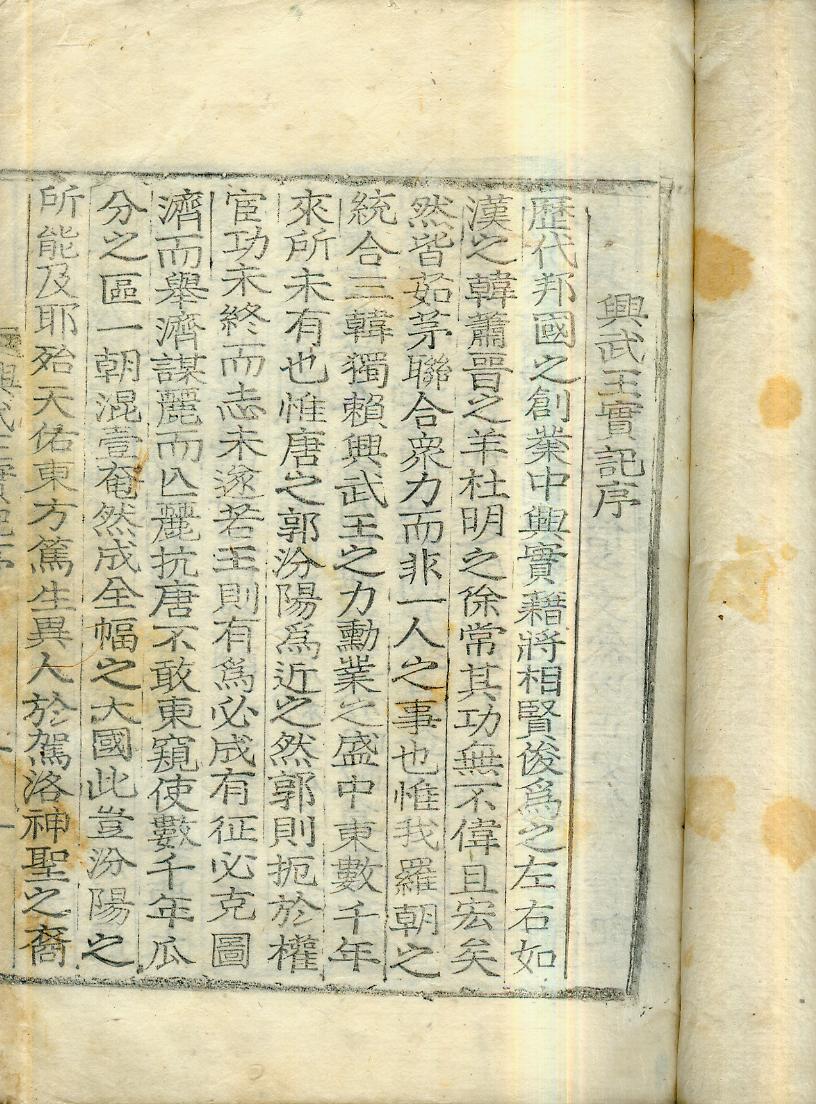 興武王實記序
歷代邦國之創業中興實藉將相賢俊爲之左右如
漢之韓蕭晉之羊杜明之徐常其功無不偉且宏矣
然皆茹茅聯合衆力而非一人之事也惟我羅朝之
統合三韓獨賴興武王之力勳業之盛中東數千年
來所未有也惟唐之郭汾陽爲近之然郭則扼於權
宦功未終而志未遂若王則有爲必成有征必克圖
濟而擧濟謀麗而亾麗抗唐不敢東窺使數千年瓜
分之區一朝混壹奄然成全幅之大國此豈汾陽之
所能及耶殆天佑東方篤生異人於駕洛神聖之裔
興武王實記序